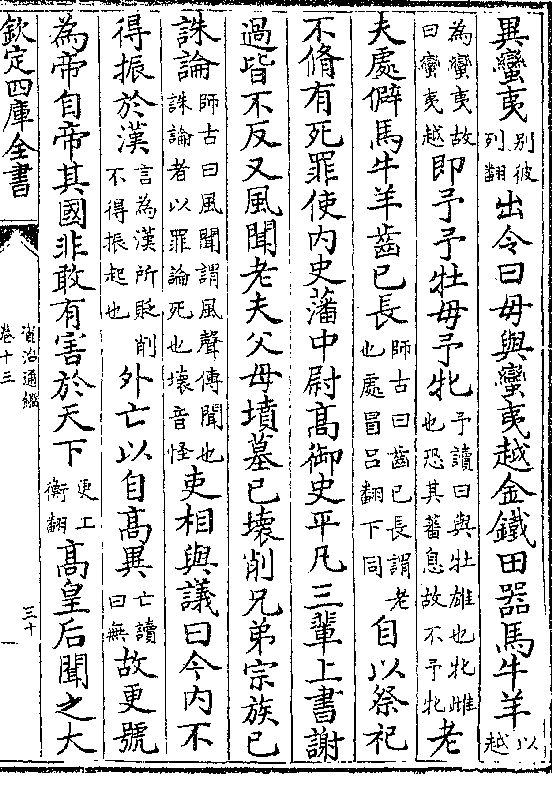 異蠻夷別彼列翻出令曰毋與蠻夷越金鐵田器馬牛羊以越
為蠻夷故曰蠻夷越即予予牡毋予牝予讀曰與牡雄也牝雌也恐其蕃息故不予牝老
夫處僻馬牛羊齒已長師古曰齒已長謂老也處昌吕翻下同自以祭祀
不脩有死罪使内史藩中尉高御史平凡三輩上書謝
過皆不反又風聞老夫父母墳墓已壞削兄弟宗族已
誅論師古曰風聞謂風聲傳聞也誅論者以罪論死也壞音怪吏相與議曰今内不
得振於漢言為漢所貶削不得振起也外亡以自高異亡讀曰無故更號
為帝自帝其國非敢有害於天下更工衡翻高皇后聞之大
欽定四庫全書
資治通鑑
卷十三
三十